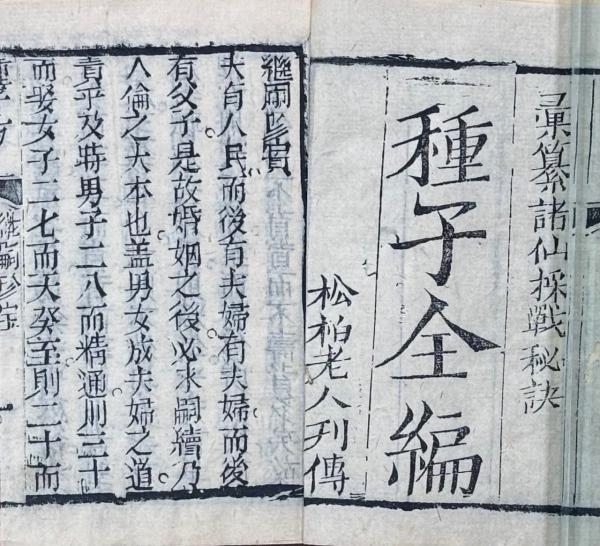 彙纂諸仙採戰秘訣
種子全編
松柏老人刋傳
繼嗣珍寶
夫有人民而後有夫婦有夫婦而後
有父子是故婚姻之後必求嗣續乃
人倫之大本也盖男女成夫婦之道
貴乎及時男子二八而精通則三十
而娶女子二七而天癸至則二十而